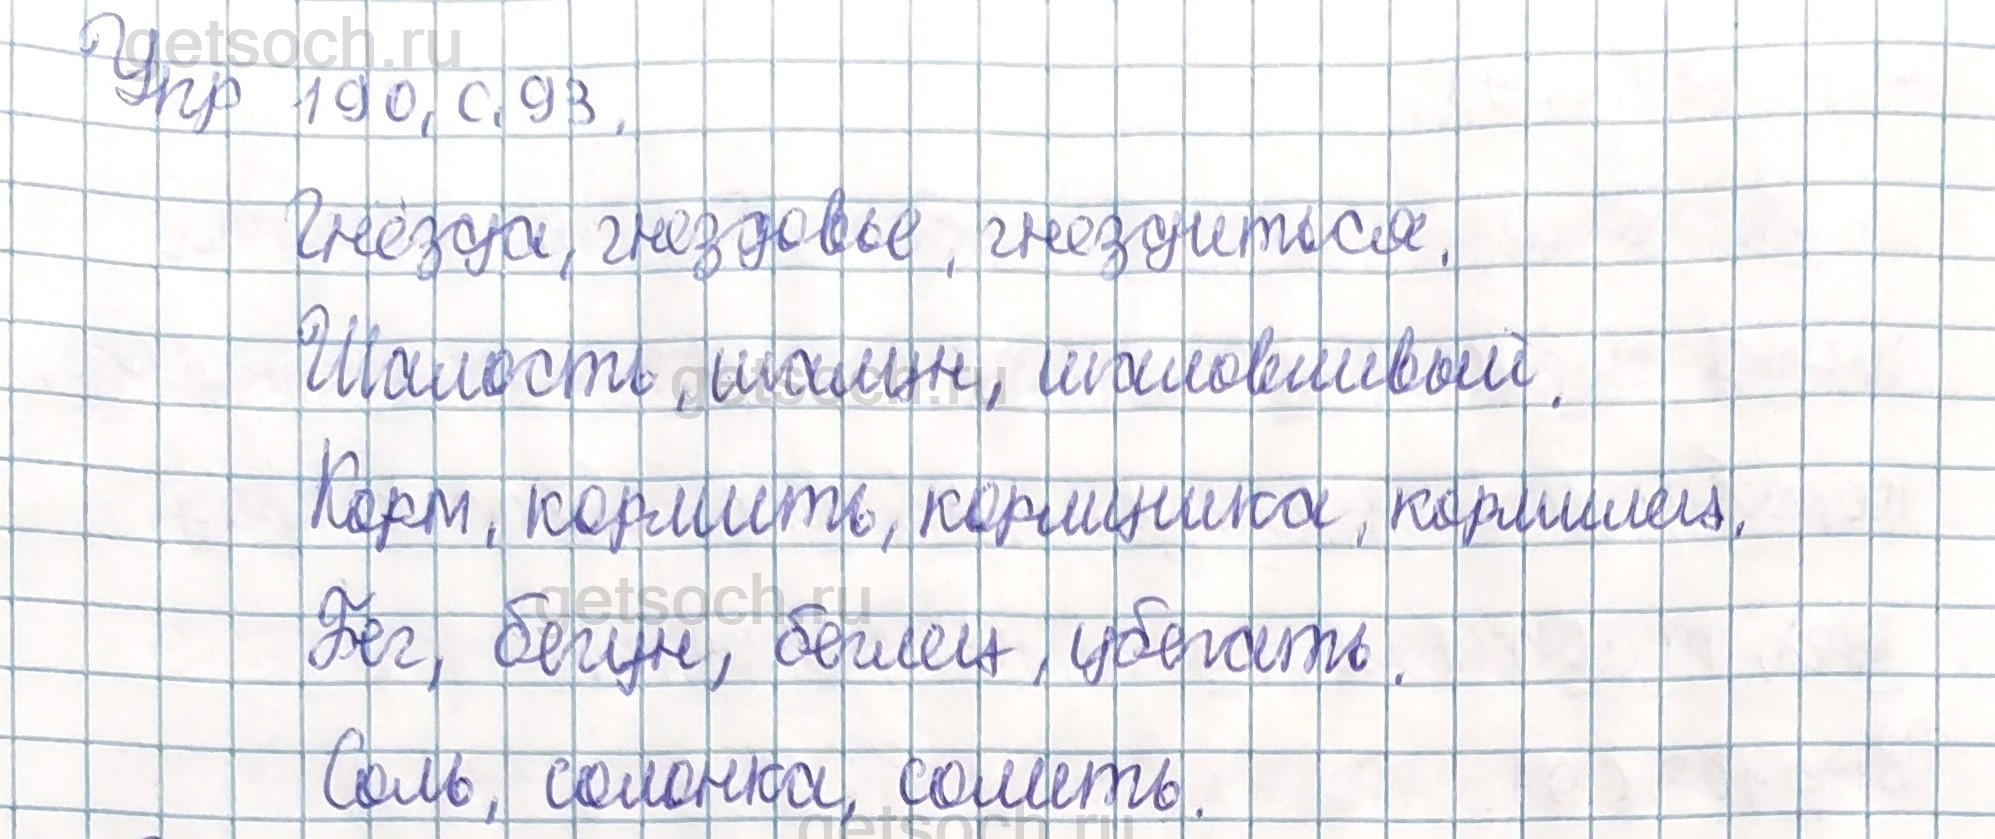 getsoch.ru
Упр 190, с. 93.
Гнёзда, гнездовье, гнездиться.
Шалость, шалун, шаловливый.
getsoch.ru
Корм, кормить, кормушка, кормилец.
getsoch.ru
Бег, бегун, беглец, убегать.
Соль, солонка, солить.
getsoch.ru